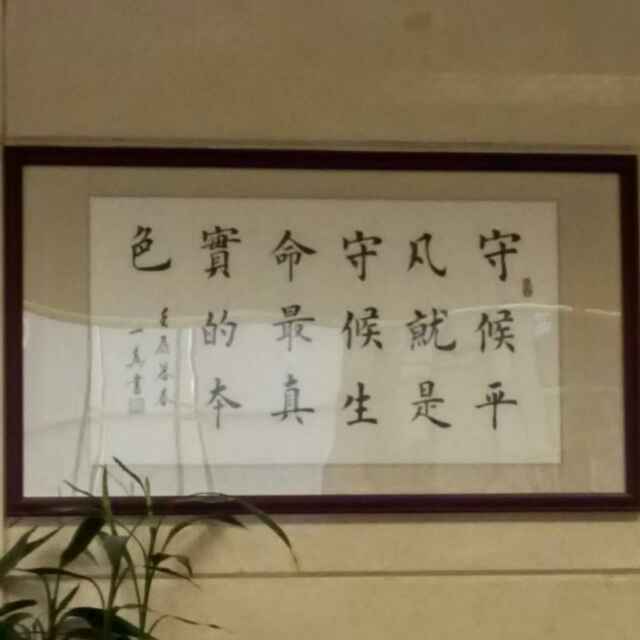 守候平
凡就是
守候生
命最真
實的本
色